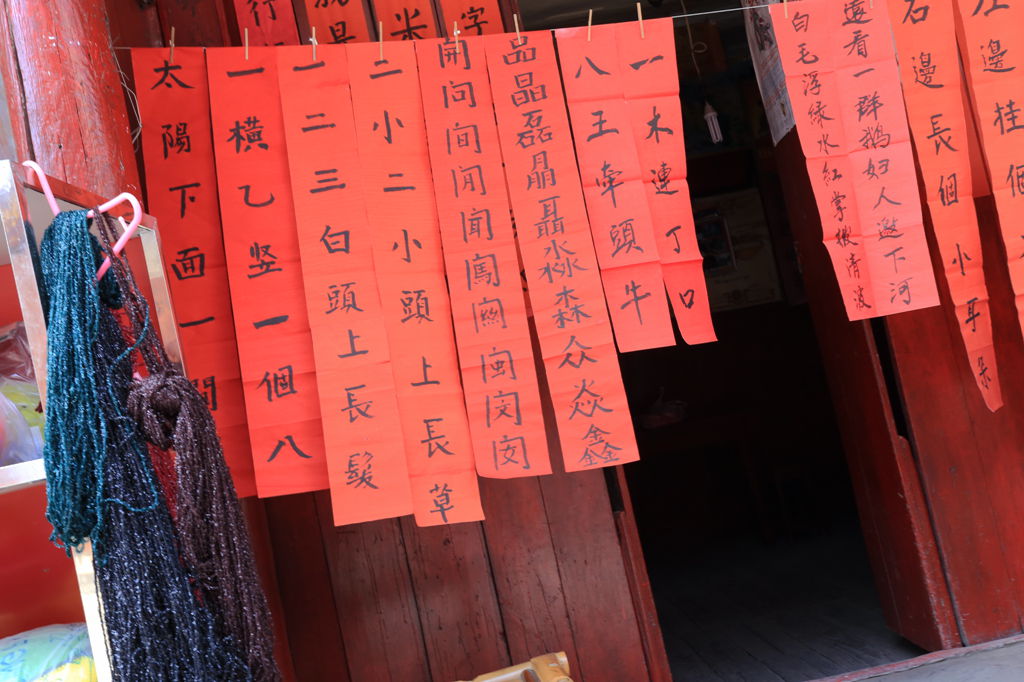 左邊桂個
右邊長個小耳朵
遠看一群鹅妇人邀下河
白毛浮绿水红掌撥清波
一木連丁口
八王牵頭牛
品晶磊晶聶淼森众焱鑫
開問間閒聞闖閩閔
二小二小頭上長草
一二三白頭上長髮
一橫乙竖一個八
太陽下面一間
字
米
行